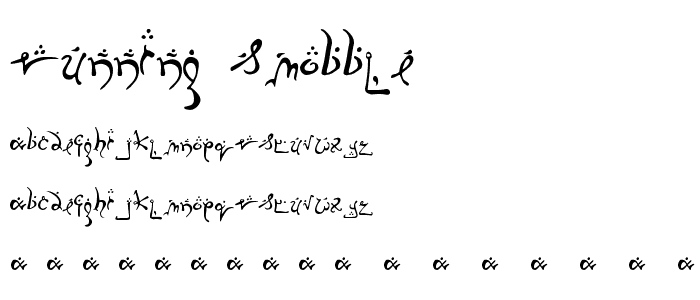 running smobble
abcdefghijklmnopqrstuvwxyz
abcdefghijklmnopqrstuvwxyz
a a a a a a a a a a a a a a a a a